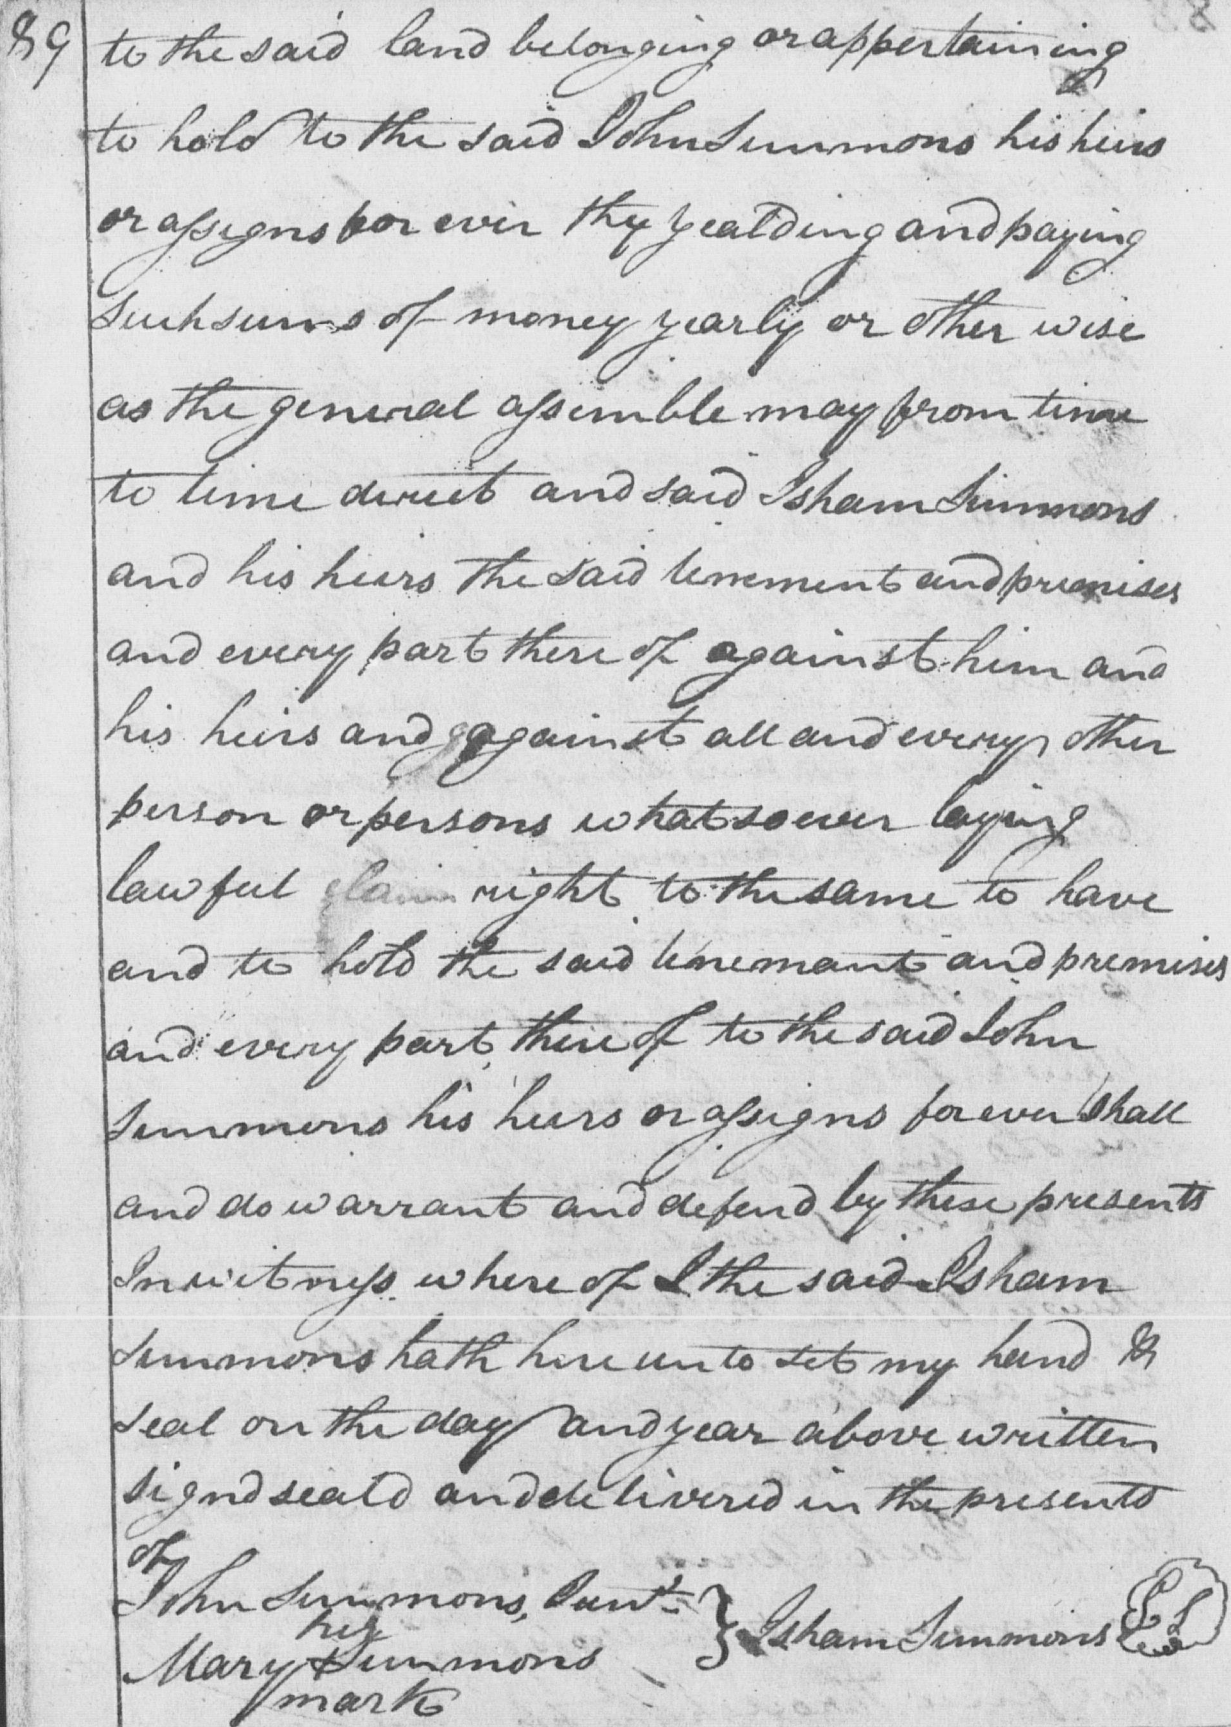 89
to the said land belonging or appertaining
to hold to the said John Simmons his heirs
or assigns for ever they yealding and paying
such sums of money yearly or other wise
as the general assemble may from time
to time direct and said Isham Simmons
and his heirs the said tenement and premises
and every part there of against him and
his heirs and against all and every other
person or persons whatsoever laying
lawful claim right to the same to have
and to hold the said tenemant and premises
and every part there of to the said John
Simmons his heirs or assigns forever shall
and do warrant and defend by these presents
In witness where of I the said Isham
Simmons hath here unto set my hand &
seal on the day and year above written
signd seald and delivered in the presents
of
John Simmons, Junr
her
Mary x Simmons
mark
} Isham Simmons LS